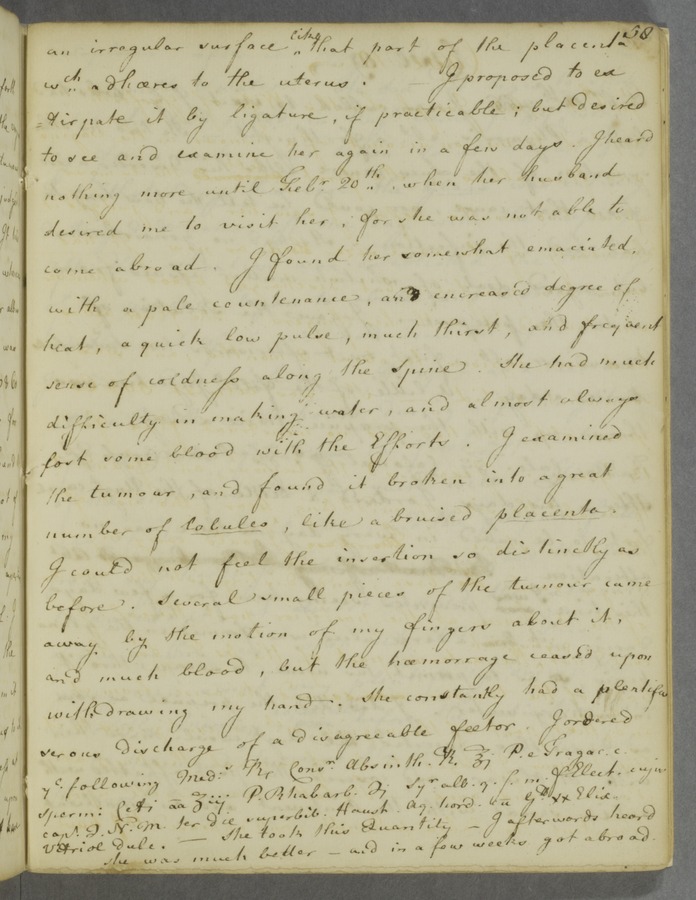 58
an irregular surface like that part of the placenta
wch adhæres to the uterus. — I proposed to ex
=tirpate it by ligature, if practicable; but desired
to see and examine her again in a few days. I heard
nothing more until Febr 20th. when her husband
desired me to visit her, for she was not able to
come abroad. I found her somewhat emaciated,
with a pale countenance, an encreased degree of
heat, a quick low pulse, much thirst, and frequent
sense of coldness along the spine. She had much
difficulty in making water, and almost always
lost some blood with the Efforts. I examined
the tumour, and found it broken into a great
number of lobules, like a bruised placenta.
I could not feel the insertion so distinctly as
before. Several small pieces of the tumour came
away by the motion of my fingers about it,
and much blood, but the hæmorrage ceased upon
withdrawing my hand. She constantly had a plentiful
serous discharge of a disagreeable fœtor. I ordered
ye following Meds Rx Consr Absinth. P. e Tragac. c.
sperm: Ceti aa P. Rhabarb. syr alb. q. s. m. f. Elect. cujus
cap. N. M. ter die superbib. Haust. Aq. hord. Elix.
vitriol dulc. — She took this Quantity — I afterwards heard
she was much better — and in a few weeks got abroad.